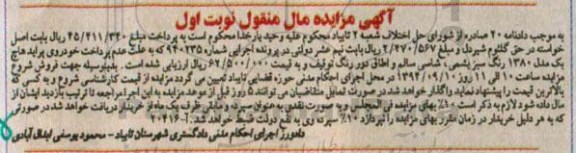 آگهی مزایده مال منقول نوبت اول
به موجب دادنامه ۲۰ صادره از شورای حل اختلاف شعبه ۲ تایباد محکوم علیه وحید یارخدا محکوم است به پرداخت مبلغ ۴۵/۲۱۱/۳۲۰ ریال بابت اصل
خواسته در حق گلثوم شیردل و مبلغ ۲/۲۷۰/۵۶۷ ریال بابت نیم عشر دولتی در پرونده اجرایی شماره ۹۴۰۲۳۵ که به علت عدم پرداخت خودروی پراید هاچ
بک مدل ۱۳۸۰ رنگ سبز یشمی، شاسی سالم و اطاق دور رنگ توقیف و به قیمت ۶۲/۵۰۰/۰۰۰ ریال ارزیابی شده است. بدینوسیله جهت فروش شروع
مزایده ساعت ۱۰ الی ۱۱ روز ۱۳۹۴/۰۹/۱۰ در محل اجرای احکام مدنی حوزه قضایی تایباد تعیین می گردد مزایده از قیمت کارشناسی شروع و به کسی که
بالاترین قیمت را پیشنهاد نماید واگذار خواهد شد در صورت تمایل متقاضیان می توانند ۵ روز قبل از موعد مزایده به این اجرا مراجعه تا ترتیب بازدید ایشان از
مال داده شود لازم به ذکر است ۱۰٪ بهای مزایده فی المجلس و به صورت نقدی به عنوان سپرده و مابقی ظرف یک ماه از خریدار دریافت خواهد شد در صورتی
که به هر دلیل خریدار در زمان مقرر بهای مزایده را نپردازد ۱۰٪ سپرده وی به نفع دولت ضبط خواهد شد. آ-۲۰۴۱۶
دادورز اجرای احکام مدنی دادگستری شهرستان تایباد - محمود یوسفی ابدال آبادی